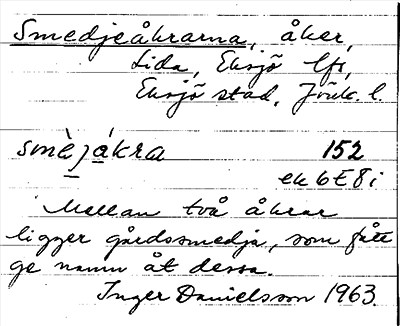 Smedjeåkrarna, åker,
Lida, Eksjö lfs,
Eksjö stad, Jönk. l.
smèjákra 152
ek 6E8i
Mellan två åkrar
ligger gårdssmedja, som fått
ge namn åt dessa.
Inger Danielsson 1963